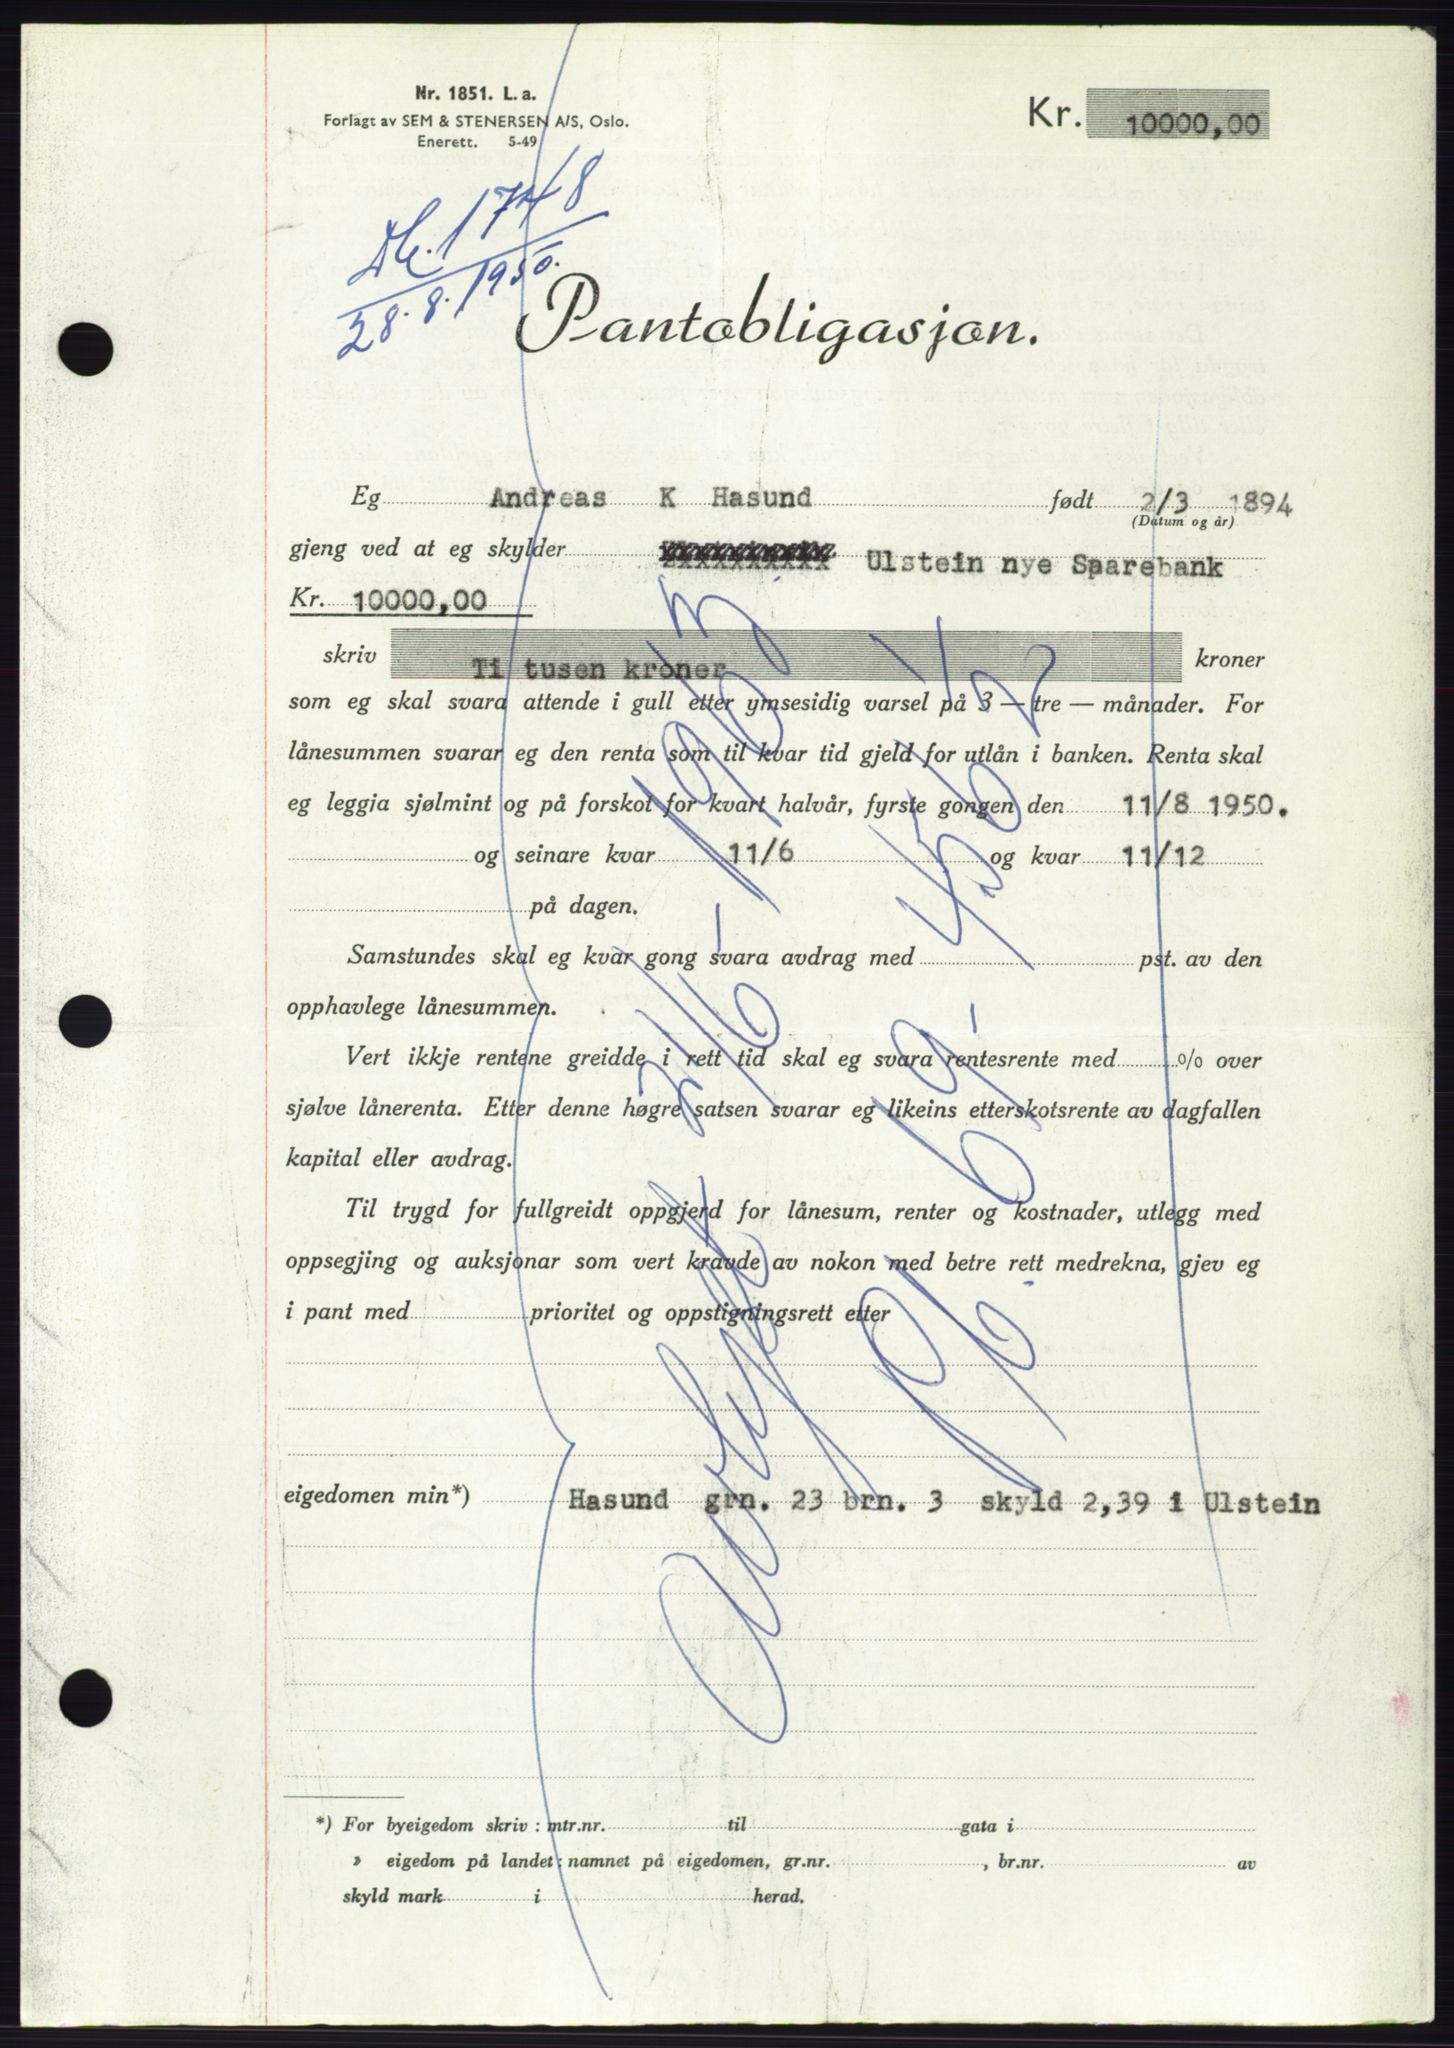 Nr. 1851. L. a.
Forlagt av SEM & STENERSEN A/S, Oslo.
Enerett. 5-49
Kr. 10000,00
Db. 1748
28.8.1950.
Pantobligasjon.
Eg Andreas K Hasund født 2/3 1894
(Datum og år)
gjeng ved at eg skylder Ulstein nye Sparebank
Kr. 10000,00
skriv Ti tusen kroner kroner
som eg skal svara attende i gull etter ymsesidig varsel på 3 — tre — månader. For
lånesummen svarar eg den renta som til kvar tid gjeld for utlån i banken. Renta skal
eg leggja sjølmint og på forskot for kvart halvår, fyrste gongen den 11/8 1950.
og seinare kvar 11/6 og kvar 11/12
på dagen.
Samstundes skal eg kvar gong svara avdrag med pst. av den
opphavlege lånesummen.
Vert ikkje rentene greidde i rett tid skal eg svara rentesrente med % over
sjølve lånerenta. Etter denne høgre satsen svarar eg likeins etterskotsrente av dagfallen
kapital eller avdrag.
Til trygd for fullgreidt oppgjerd for lånesum, renter og kostnader, utlegg med
oppsegjing og auksjonar som vert kravde av nokon med betre rett medrekna, gjev eg
i pant med prioritet og oppstigningsrett etter
eigedomen min*) Hasund grn. 23 brn. 3 skyld 2,39 i Ulstein
Avlyst 21/6-1963.
*) For byeigedom skriv: mtr.nr. til gata i
» eigedom på landet: namnet på eigedomen, gr.nr. , br.nr. av
skyld mark i herad.